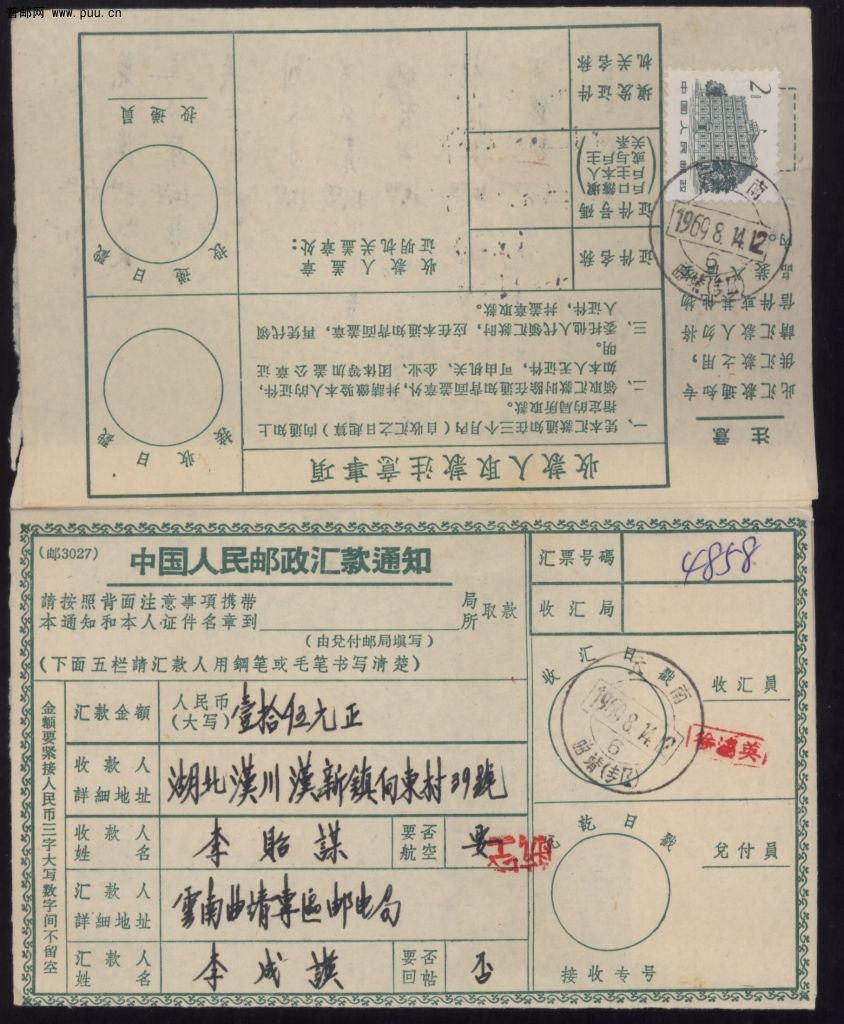 普邮网 www.puu.cn
2分
中国人民邮政
南
1969.8.14.12
6
曲靖(专区)
注意
此汇款通知专
供汇款之用，
請汇款人勿将
信件或其他物
品裝入
內。
收款人取款注意事項
一、凭本汇款通知在三个月內（自收汇之日起算）向通知上
指定的局所取款。
二、領取汇款时除在通知背面盖章外，幷請繳驗本人的证件，
如本人无证件，可由机关、企业、团体等加盖公章证
明。
三、委托他人代領汇款时，应在本通知背面盖章，再凭代領
人证件，幷盖章取款。
证件名称
证件号碼
戶口簿載
(戶主本人
或与戶主
关系)
填发证件
机关名称
收款人盖章
证明机关盖章处：
接收日戳
投递日戳
投递員
(邮3027)
中国人民邮政汇款通知
請按照背面注意事項携带
本通知和本人证件名章到 局所 取款
(由兑付邮局填写)
(下面五栏請汇款人用鋼笔或毛笔书写清楚)
金額要紧接人民币三字大写数字间不留空
汇款金額 人民币(大写) 壹拾伍元正
收款人詳細地址 湖北漢川漢新鎮向東村39號
收款人姓名 李貽謀 要否航空 要
航空
汇款人詳細地址 雲南曲靖專區邮电局
汇款人姓名 李成謨 要否回帖 否
汇票号碼 4858
收汇局
收汇日戳
收汇員
南
1969.8.14.12
6
曲靖(专区)
兌訖日戳
兌付員
接收专号